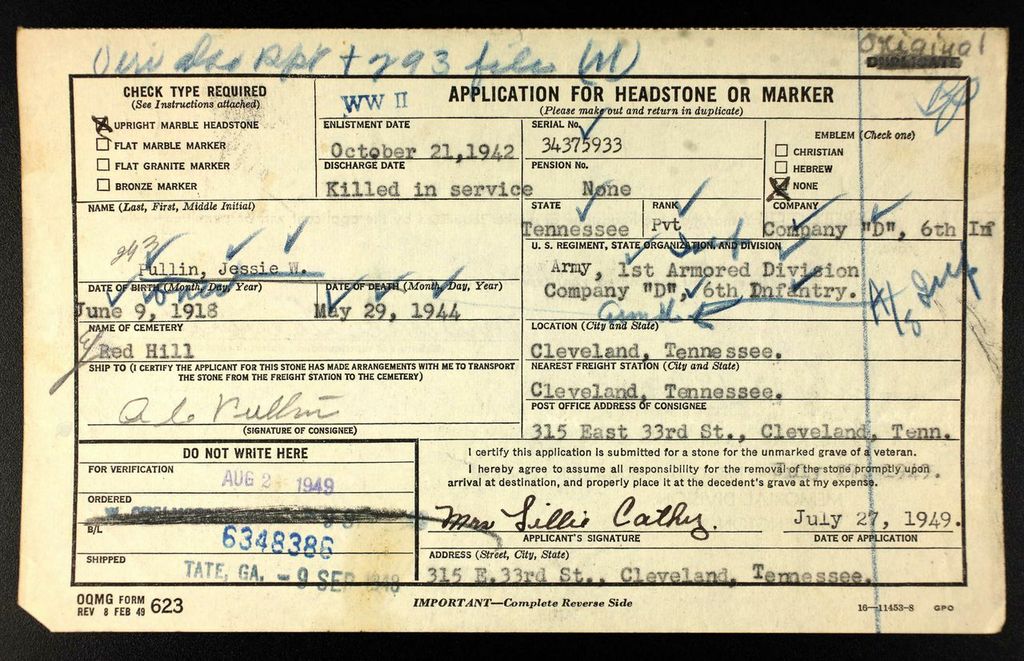 + 293 files (M)
Original
DUPLICATE
CHECK TYPE REQUIRED
(See Instructions attached)
UPRIGHT MARBLE HEADSTONE
FLAT MARBLE MARKER
FLAT GRANITE MARKER
BRONZE MARKER
WW II
APPLICATION FOR HEADSTONE OR MARKER
(Please make out and return in duplicate)
ENLISTMENT DATE
October 21,1942
DISCHARGE DATE
Killed in service
SERIAL No.
34375933
PENSION No.
None
EMBLEM (Check one)
CHRISTIAN
HEBREW
NONE
NAME (Last, First, Middle Initial)
293
Pullin, Jessie W.
STATE
Tennessee
RANK
Pvt
COMPANY
Company "D", 6th Inf
U. S. REGIMENT, STATE ORGANIZATION, AND DIVISION
Army, 1st Armored Division
Company "D", 6th Infantry.
DATE OF BIRTH (Month, Day, Year)
June 9, 1918
DATE OF DEATH (Month, Day, Year)
May 29, 1944
NAME OF CEMETERY
Red Hill
LOCATION (City and State)
Cleveland, Tennessee.
SHIP TO (I CERTIFY THE APPLICANT FOR THIS STONE HAS MADE ARRANGEMENTS WITH ME TO TRANSPORT
THE STONE FROM THE FREIGHT STATION TO THE CEMETERY)
A C Pullin
(SIGNATURE OF CONSIGNEE)
NEAREST FREIGHT STATION (City and State)
Cleveland, Tennessee.
POST OFFICE ADDRESS OF CONSIGNEE
315 East 33rd St., Cleveland, Tenn.
DO NOT WRITE HERE
FOR VERIFICATION
AUG 2 1949
ORDERED
B/L
6348386
SHIPPED
TATE, GA. - 9 SEP
I certify this application is submitted for a stone for the unmarked grave of a veteran.
I hereby agree to assume all responsibility for the removal of the stone promptly upon
arrival at destination, and properly place it at the decedent's grave at my expense.
Mrs Lillie Cathey.
APPLICANT'S SIGNATURE
July 27, 1949.
DATE OF APPLICATION
ADDRESS (Street, City, State)
315 E.33rd St., Cleveland, Tennessee.
OQMG FORM
REV 8 FEB 49 623
IMPORTANT—Complete Reverse Side
16—11453-8 GPO